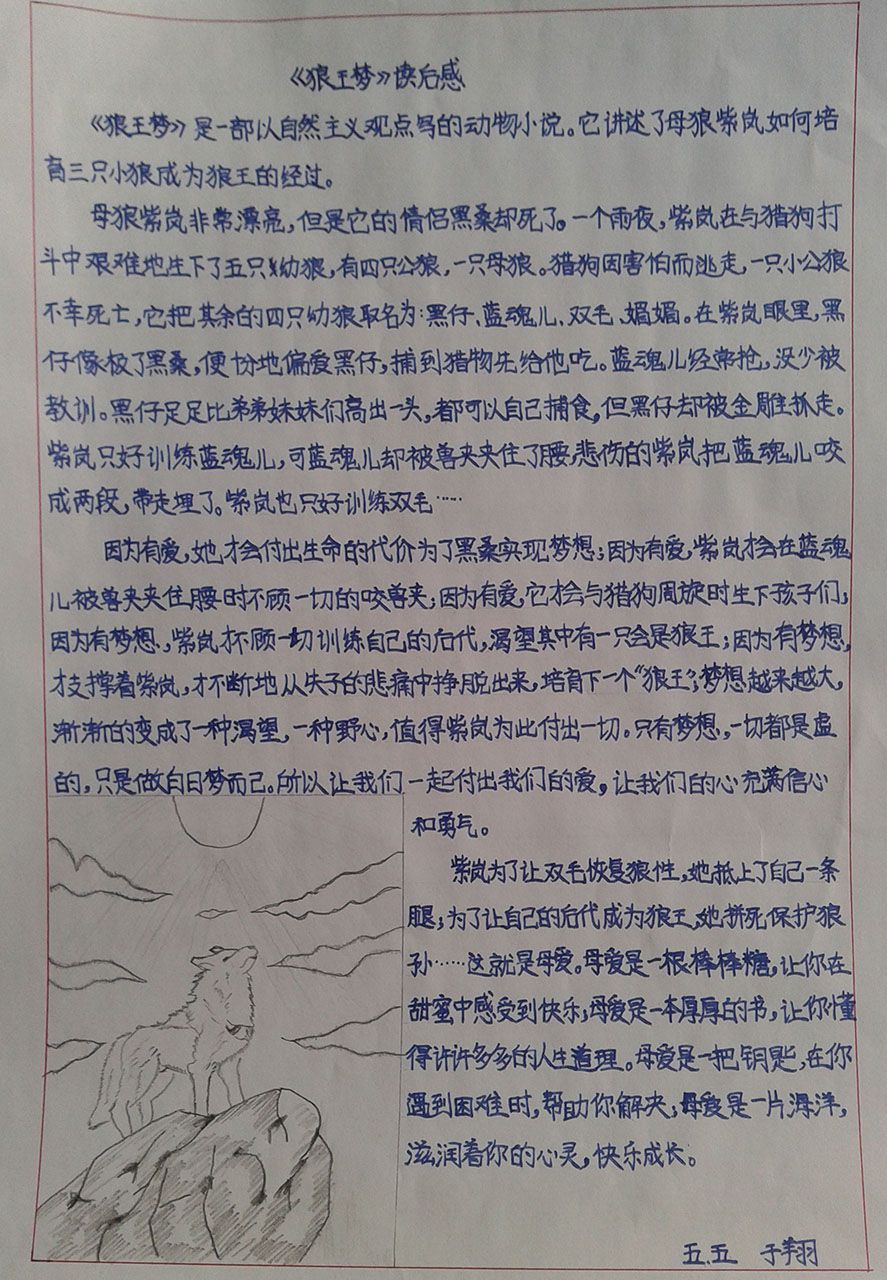 《狼王梦》读后感
《狼王梦》是一部以自然主义观点写的动物小说。它讲述了母狼紫岚如何培
育三只小狼成为狼王的经过。
母狼紫岚非常漂亮,但是它的情侣黑桑却死了。一个雨夜,紫岚在与猎狗打
斗中艰难地生下了五只幼狼,有四只公狼,一只母狼。猎狗因害怕而逃走,一只小公狼
不幸死亡,它把其余的四只幼狼取名为:黑仔、蓝魂儿、双毛、媚媚。在紫岚眼里,黑
仔像极了黑桑,便十分地偏爱黑仔,捕到猎物先给他吃。蓝魂儿经常抢,没少被
教训。黑仔足足比弟弟妹妹们高出一头,都可以自己捕食,但黑仔却被金雕抓走。
紫岚只好训练蓝魂儿,可蓝魂儿却被兽夹夹住了腰,悲伤的紫岚把蓝魂儿咬
成两段,带走埋了。紫岚也只好训练双毛……
因为有爱,她才会付出生命的代价为了黑桑实现梦想;因为有爱,紫岚才会在蓝魂
儿被兽夹夹住腰时不顾一切的咬兽夹;因为有爱,它才会与猎狗周旋时生下孩子们;
因为有梦想,紫岚才不顾一切训练自己的后代,渴望其中有一只会是狼王;因为有梦想,
才支撑着紫岚,才不断地从失子的悲痛中挣脱出来,培育下一个“狼王”;梦想越来越大,
渐渐的变成了一种渴望,一种野心,值得紫岚为此付出一切。只有梦想,一切都是虚
的,只是做白日梦而已。所以让我们一起付出我们的爱,让我们的心充满信心
和勇气。
紫岚为了让双毛恢复狼性,她抵上了自己一条
腿;为了让自己的后代成为狼王,她拼死保护狼
孙……这就是母爱。母爱是一根棒棒糖,让你在
甜蜜中感受到快乐;母爱是一本厚厚的书,让你懂
得许许多多的人生道理。母爱是一把钥匙,在你
遇到困难时,帮助你解决;母爱是一片海洋,
滋润着你的心灵,快乐成长。
五.五 于翔